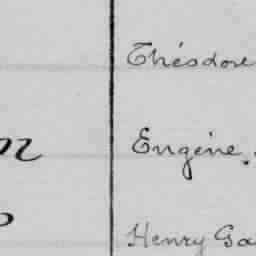 Théodore
Eugène.
Henry Ga